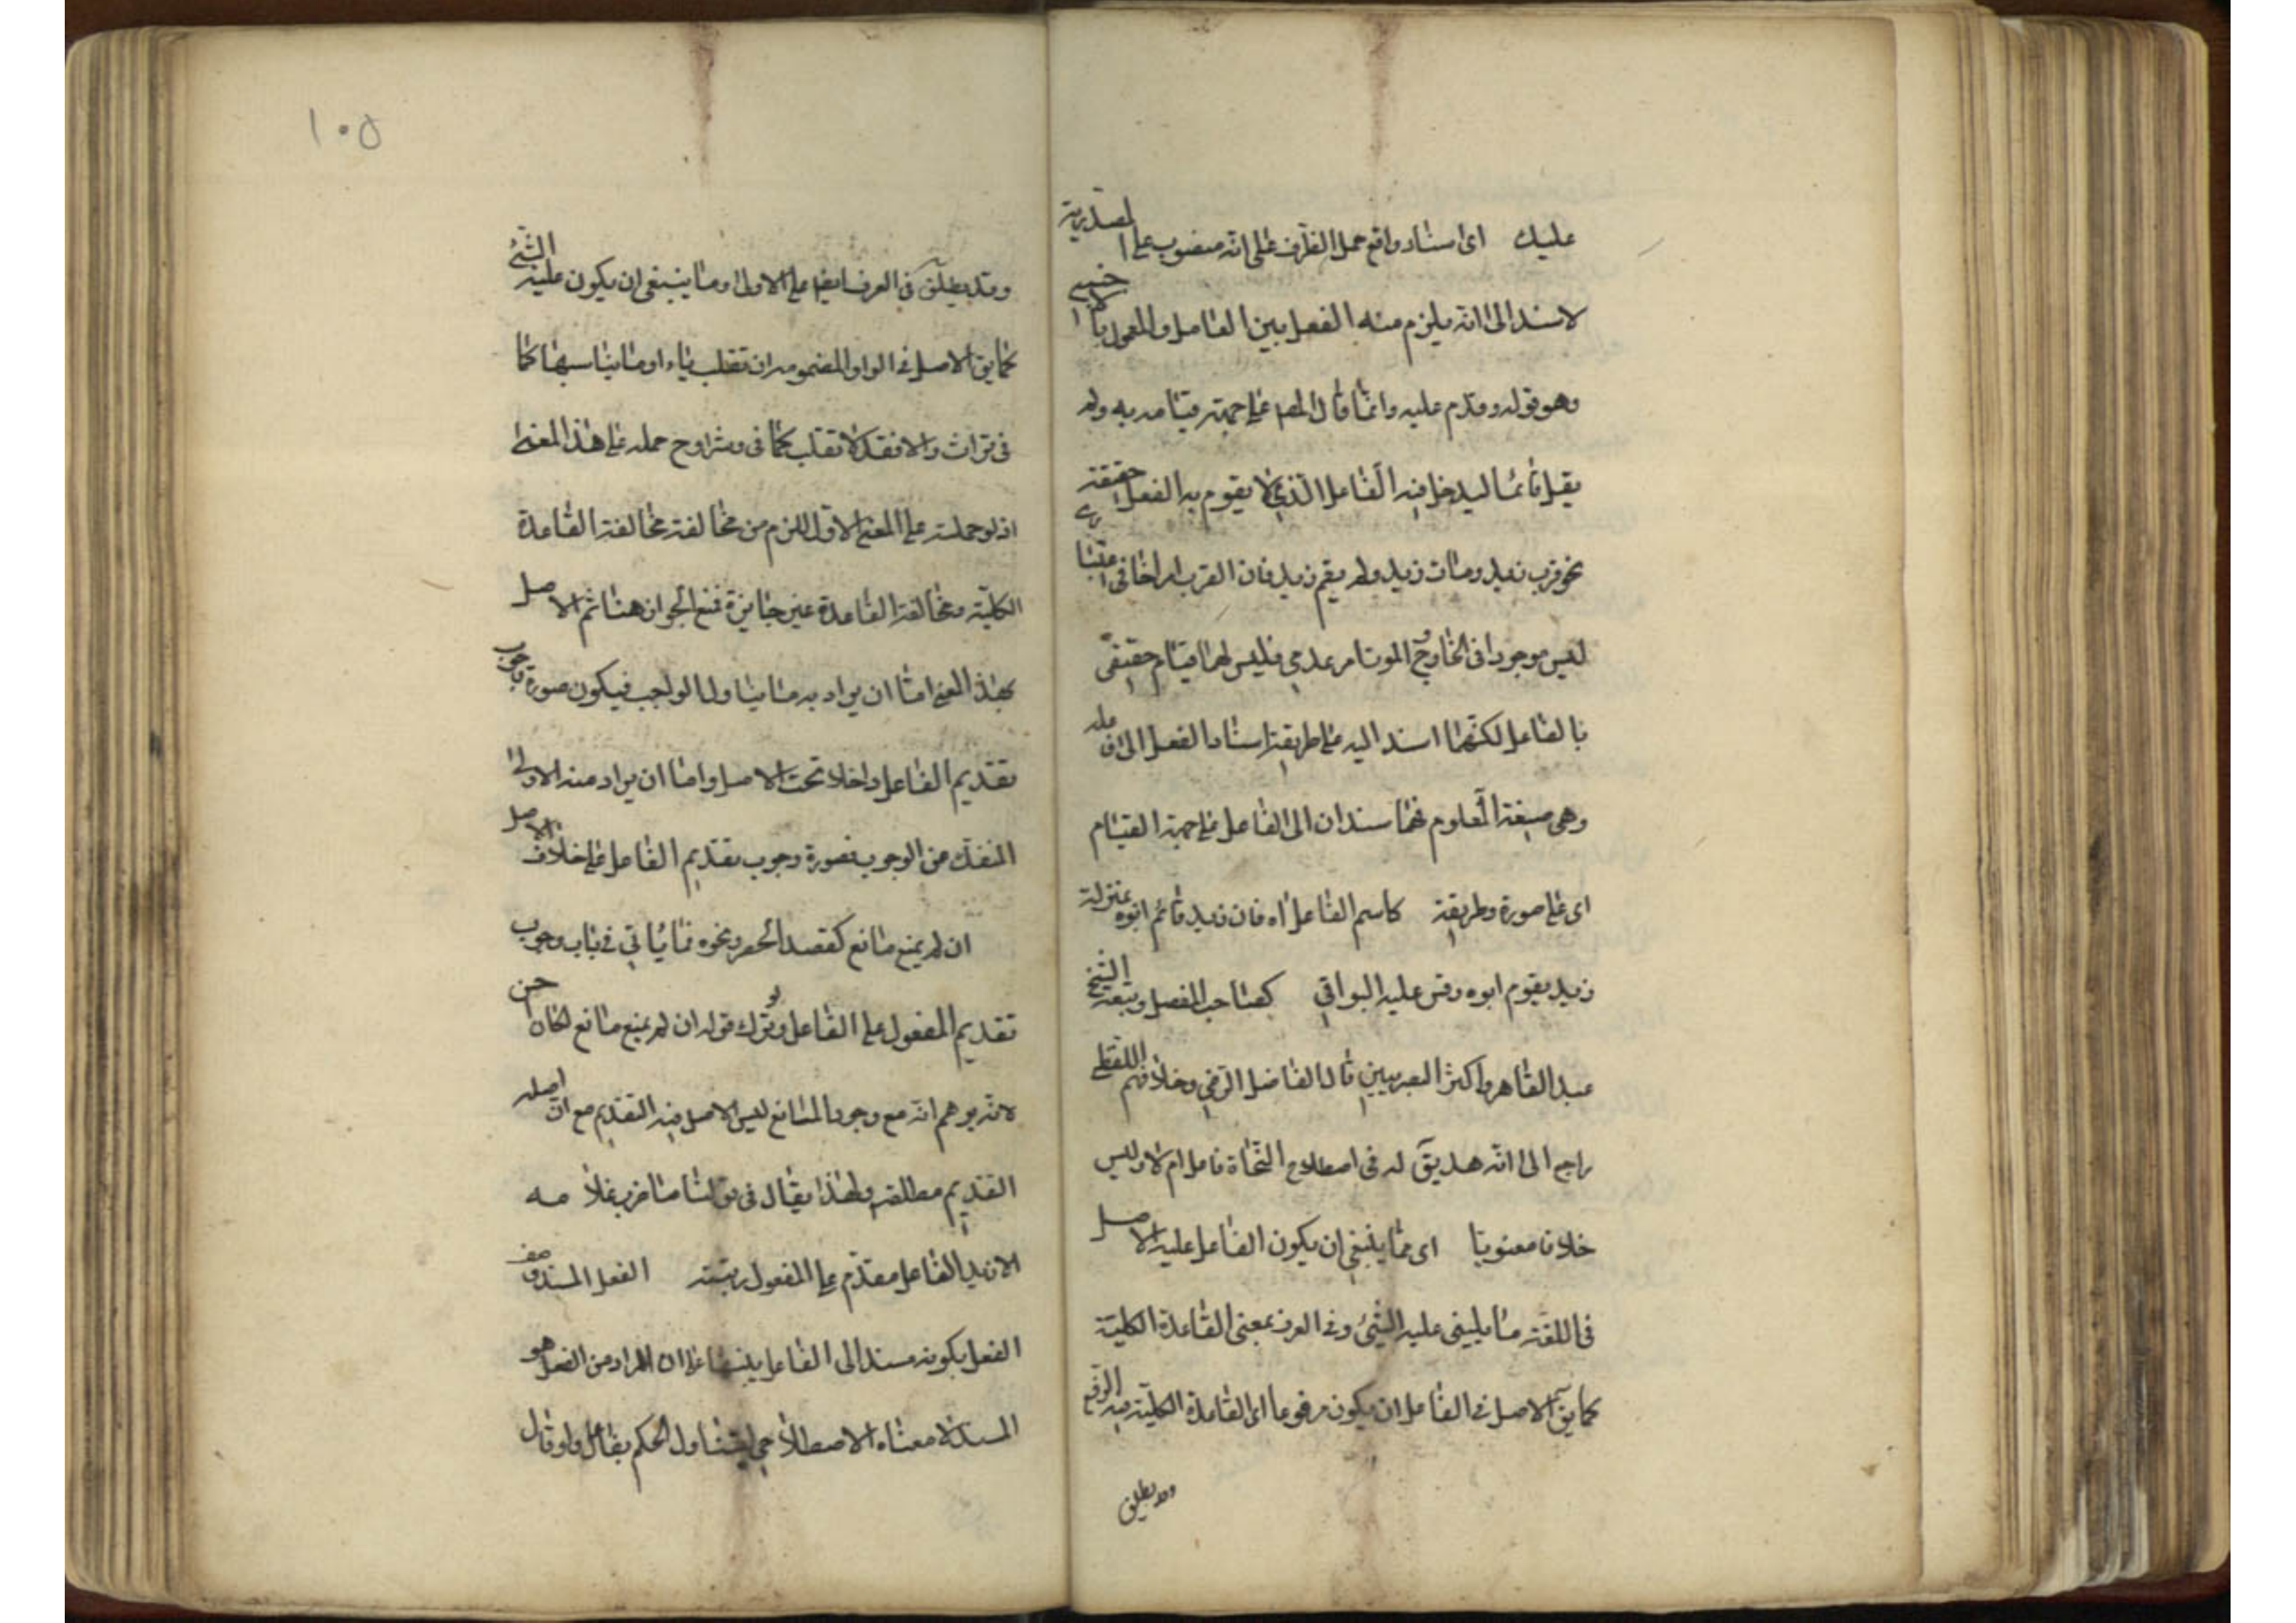 عليك اى اسناد واقع حمل الظرف على انّه منصوب على المصدرية
لاستدالى انّه يلزم منه الفصل بين العامل والمعمول باجنبى
وهو قوله وقدم عليه وانما قال المص على جهة قيامه به ولم
يقل قائما ليدخل فيه الفاعل الّذى لا يقوم به الفعل حقيقة
نحو قرب زيد ومات زيد ولم يقم زيد فان القرب امر اعتبارى
ليس موجودا فى الخارج والموت امر عدمى فليس لهما قيام حقيقى
بالفاعل لكنّهما اسند اليه على طريقة اسناد الفعل الى فاعله
وهى صيغة المعلوم فهما مسندان الى الفاعل على جهة القيام
اى على صورة وطريقة كاسم الفاعل اه فان زيد قائم ابوه بمنزلة
زيد يقوم ابوه وقس عليه البواقى كصاحب المفصل وتبعه الشيخ
عبد القاهر واكثر البصريين قال الفاضل الرّضى وخلافهم اللفظى
راجع الى انّه هل يق له فى اصطلاح النّحاة فاعل ام لا وليس
خلافا معنويا اى مما ينبغى ان يكون الفاعل عليه الاصل
فى اللغة ما يبنى عليه الشئ وفى العرف بمعنى القاعدة الكلية
كما يق الاصل فى الفاعل ان يكون مرفوعا اى القاعدة الكلية فيه الرّفع
وقد يطلق
١٠٥
وقد يطلق فى العرف ايضا على الاولى وما ينبغى ان يكون عليه الشئ
كما يق الاصل فى الواو المضمومة ان تقلب تاء او ما يناسبها كما
فى تراث والا فقد لا تقلب كما فى وح حمله على هذا المعنى
اذ لو حملته على المعنى الاوّل للزم من مخالفته مخالفة القاعدة
الكلية ومخالفة القاعدة غير جايزة فمنع الجواز هنا ثم الاصل
بهذا المعنى امّا ان يراد به ما يتناول الواجب فيكون صورة وجوب
تقديم الفاعل داخلا تحت الاصل وامّا ان يراد منه الاولى
المنفك عن الوجوب فصورة وجوب تقديم الفاعل على خلاف الاصل
ان لم يمنع مانع كقصد الحصر ونحوه فما يأتى فى باب وجوب
تقديم المفعول على الفاعل ولو ترك قوله ان لم يمنع مانع لكان احسن
لانّه يوهم انّه مع وجود المانع ليس الاصل فيه التقديم مع انّ اصله
التقديم مطلقا ولهذا يقال فى قولنا ما ضرب غلامه
الا زيد الفاعل مقدّم على المفعول رتبته الفعل المسند وصف
الفعل بكونه مسندا الى الفاعل تنبيها على ان المراد من الفعل هو
المسند لا معناه الاصطلاحى ليتناول الحكم بقائل ولو قال